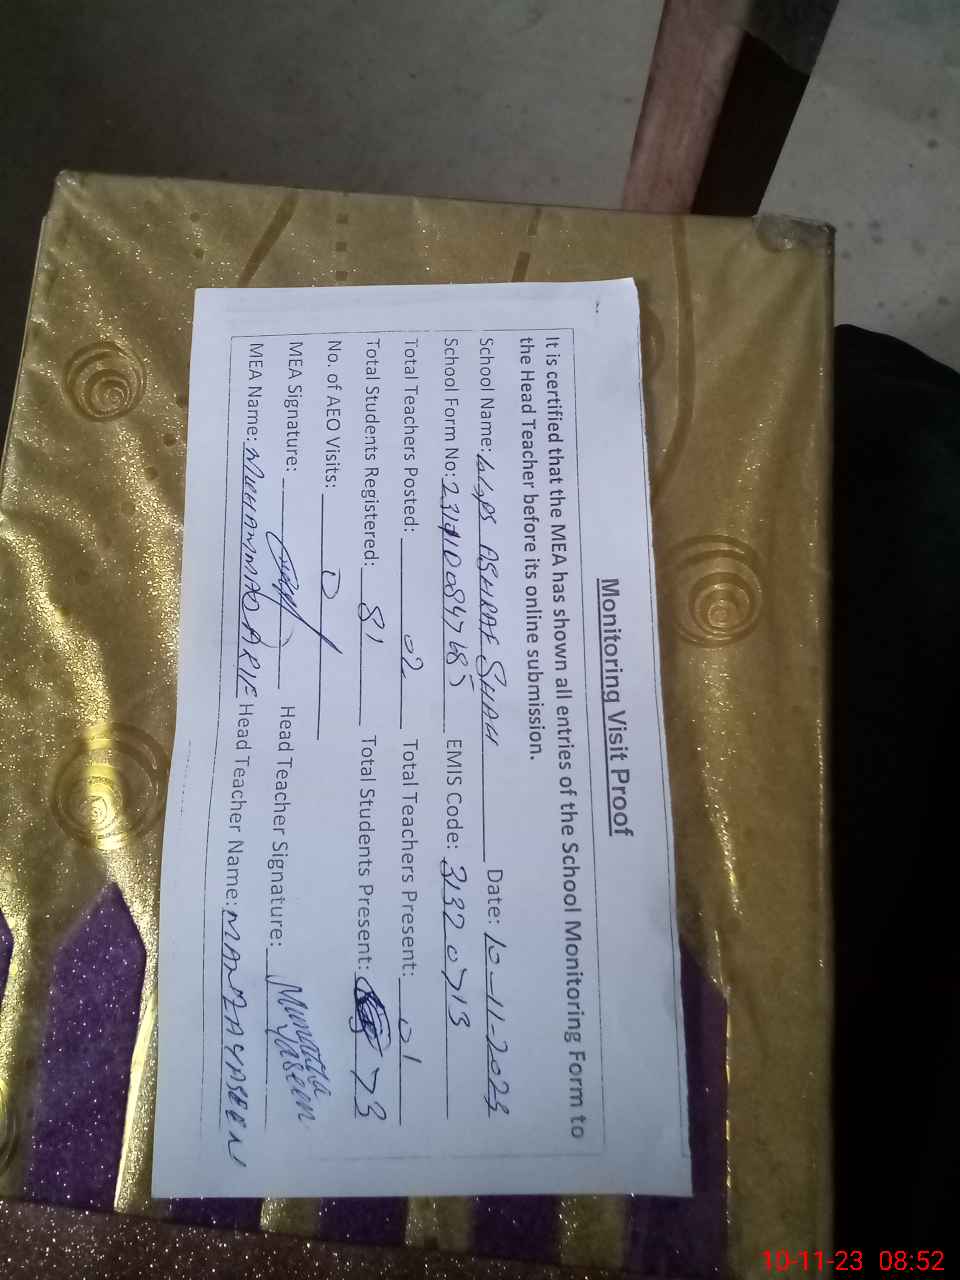 Monitoring Visit Proof
It is certified that the MEA has shown all entries of the School Monitoring Form to
the Head Teacher before its online submission.
School Name: ASHRAF SHAH Date: 10-11-2023
School Form No: EMIS Code: 31320713
Total Teachers Posted: 02 Total Teachers Present: 01
Total Students Registered: 81 Total Students Present: 73
No. of AEO Visits: 0
MEA Signature: Head Teacher Signature: Yaseen
MEA Name: MUHAMMAD ARIF Head Teacher Name: YASEEN
10-11-23 08:52